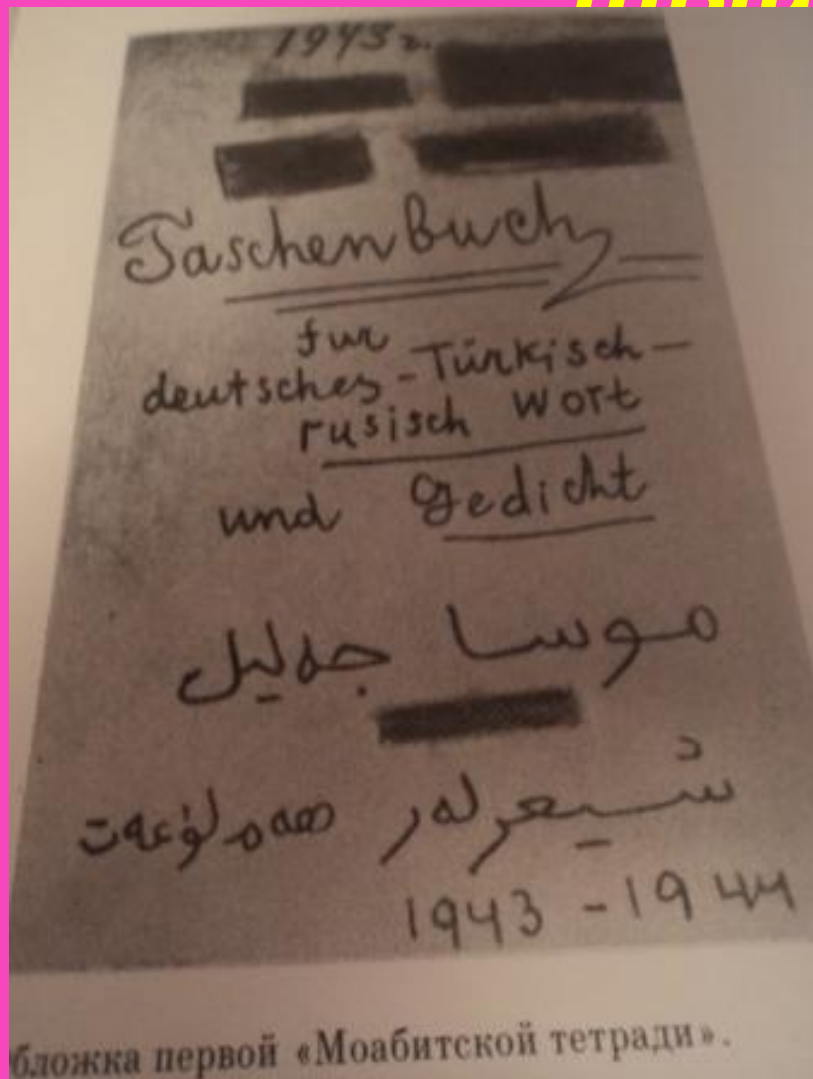 1943 г.
Taschenbuch
fur
deutsches-Türkisch-
rusisch Wort
und Gedicht
موسا جەلیل
شیعرلەر ھەم لۇغەت
1943-1944
бложка первой «Моабитской тетради».